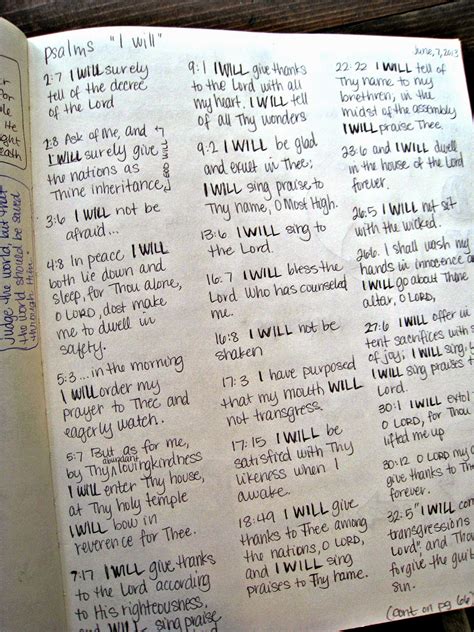 psalms "I will"
June, 7, 2013
2:7 I WILL surely
tell of the decree
of the Lord
2:8 Ask of me, and
I WILL surely give
the nations as
Thine inheritance,
GOD WILL
3:6 I WILL not be
afraid...
4:8 In peace I WILL
both lie down and
sleep, for Thou alone,
O LORD, dost make
me to dwell in
safety.
5:3 ...in the morning
I WILL order my
prayer to Thee and
eagerly watch.
5:7 But as for me,
by Thy abundant lovingkindness
I WILL enter Thy house,
at Thy holy temple
I WILL bow in
reverence for Thee.
7:17 I WILL give thanks
to the Lord according
to His righteousness.
and WILL sing praise
9:1 I WILL give thanks
to the Lord with all
my heart. I WILL tell
of all Thy wonders
9:2 I WILL be glad
and exult in Thee;
I WILL sing praise to
Thy name, O Most High.
13:6 I WILL sing to
the Lord.
16:7 I WILL bless the
Lord Who has counseled
me.
16:8 I WILL not be
shaken
17:3 I have purposed
that my mouth WILL
not transgress.
17:15 I WILL be
satisfied with Thy
likeness when I
awake.
18:49 I WILL give
thanks to Thee among
the nations, O LORD,
and I WILL sing
praises to Thy name.
22:22 I WILL tell of
Thy name to my
brethren; in the
midst of the assembly
I WILL praise Thee.
23:6 and I WILL dwell
in the house of the Lord
forever.
26:5 I WILL not sit
with the wicked.
26:6 I shall wash my
hands in innocence and
I WILL go about Thine
altar, O LORD,
27:6 I WILL offer in
tent sacrifices with
of joy; I WILL sing,
I WILL sing praises to
Lord.
30:1 I WILL extol
O LORD, for Thou
lifted me up
30:12 O LORD my
give thanks to
forever.
32:5 "I WILL con
transgressions
Lord", and Thou
forgive the guilt
sin.
(cont on pg 66)
judge the world, but that
the world should be saved
through Him."